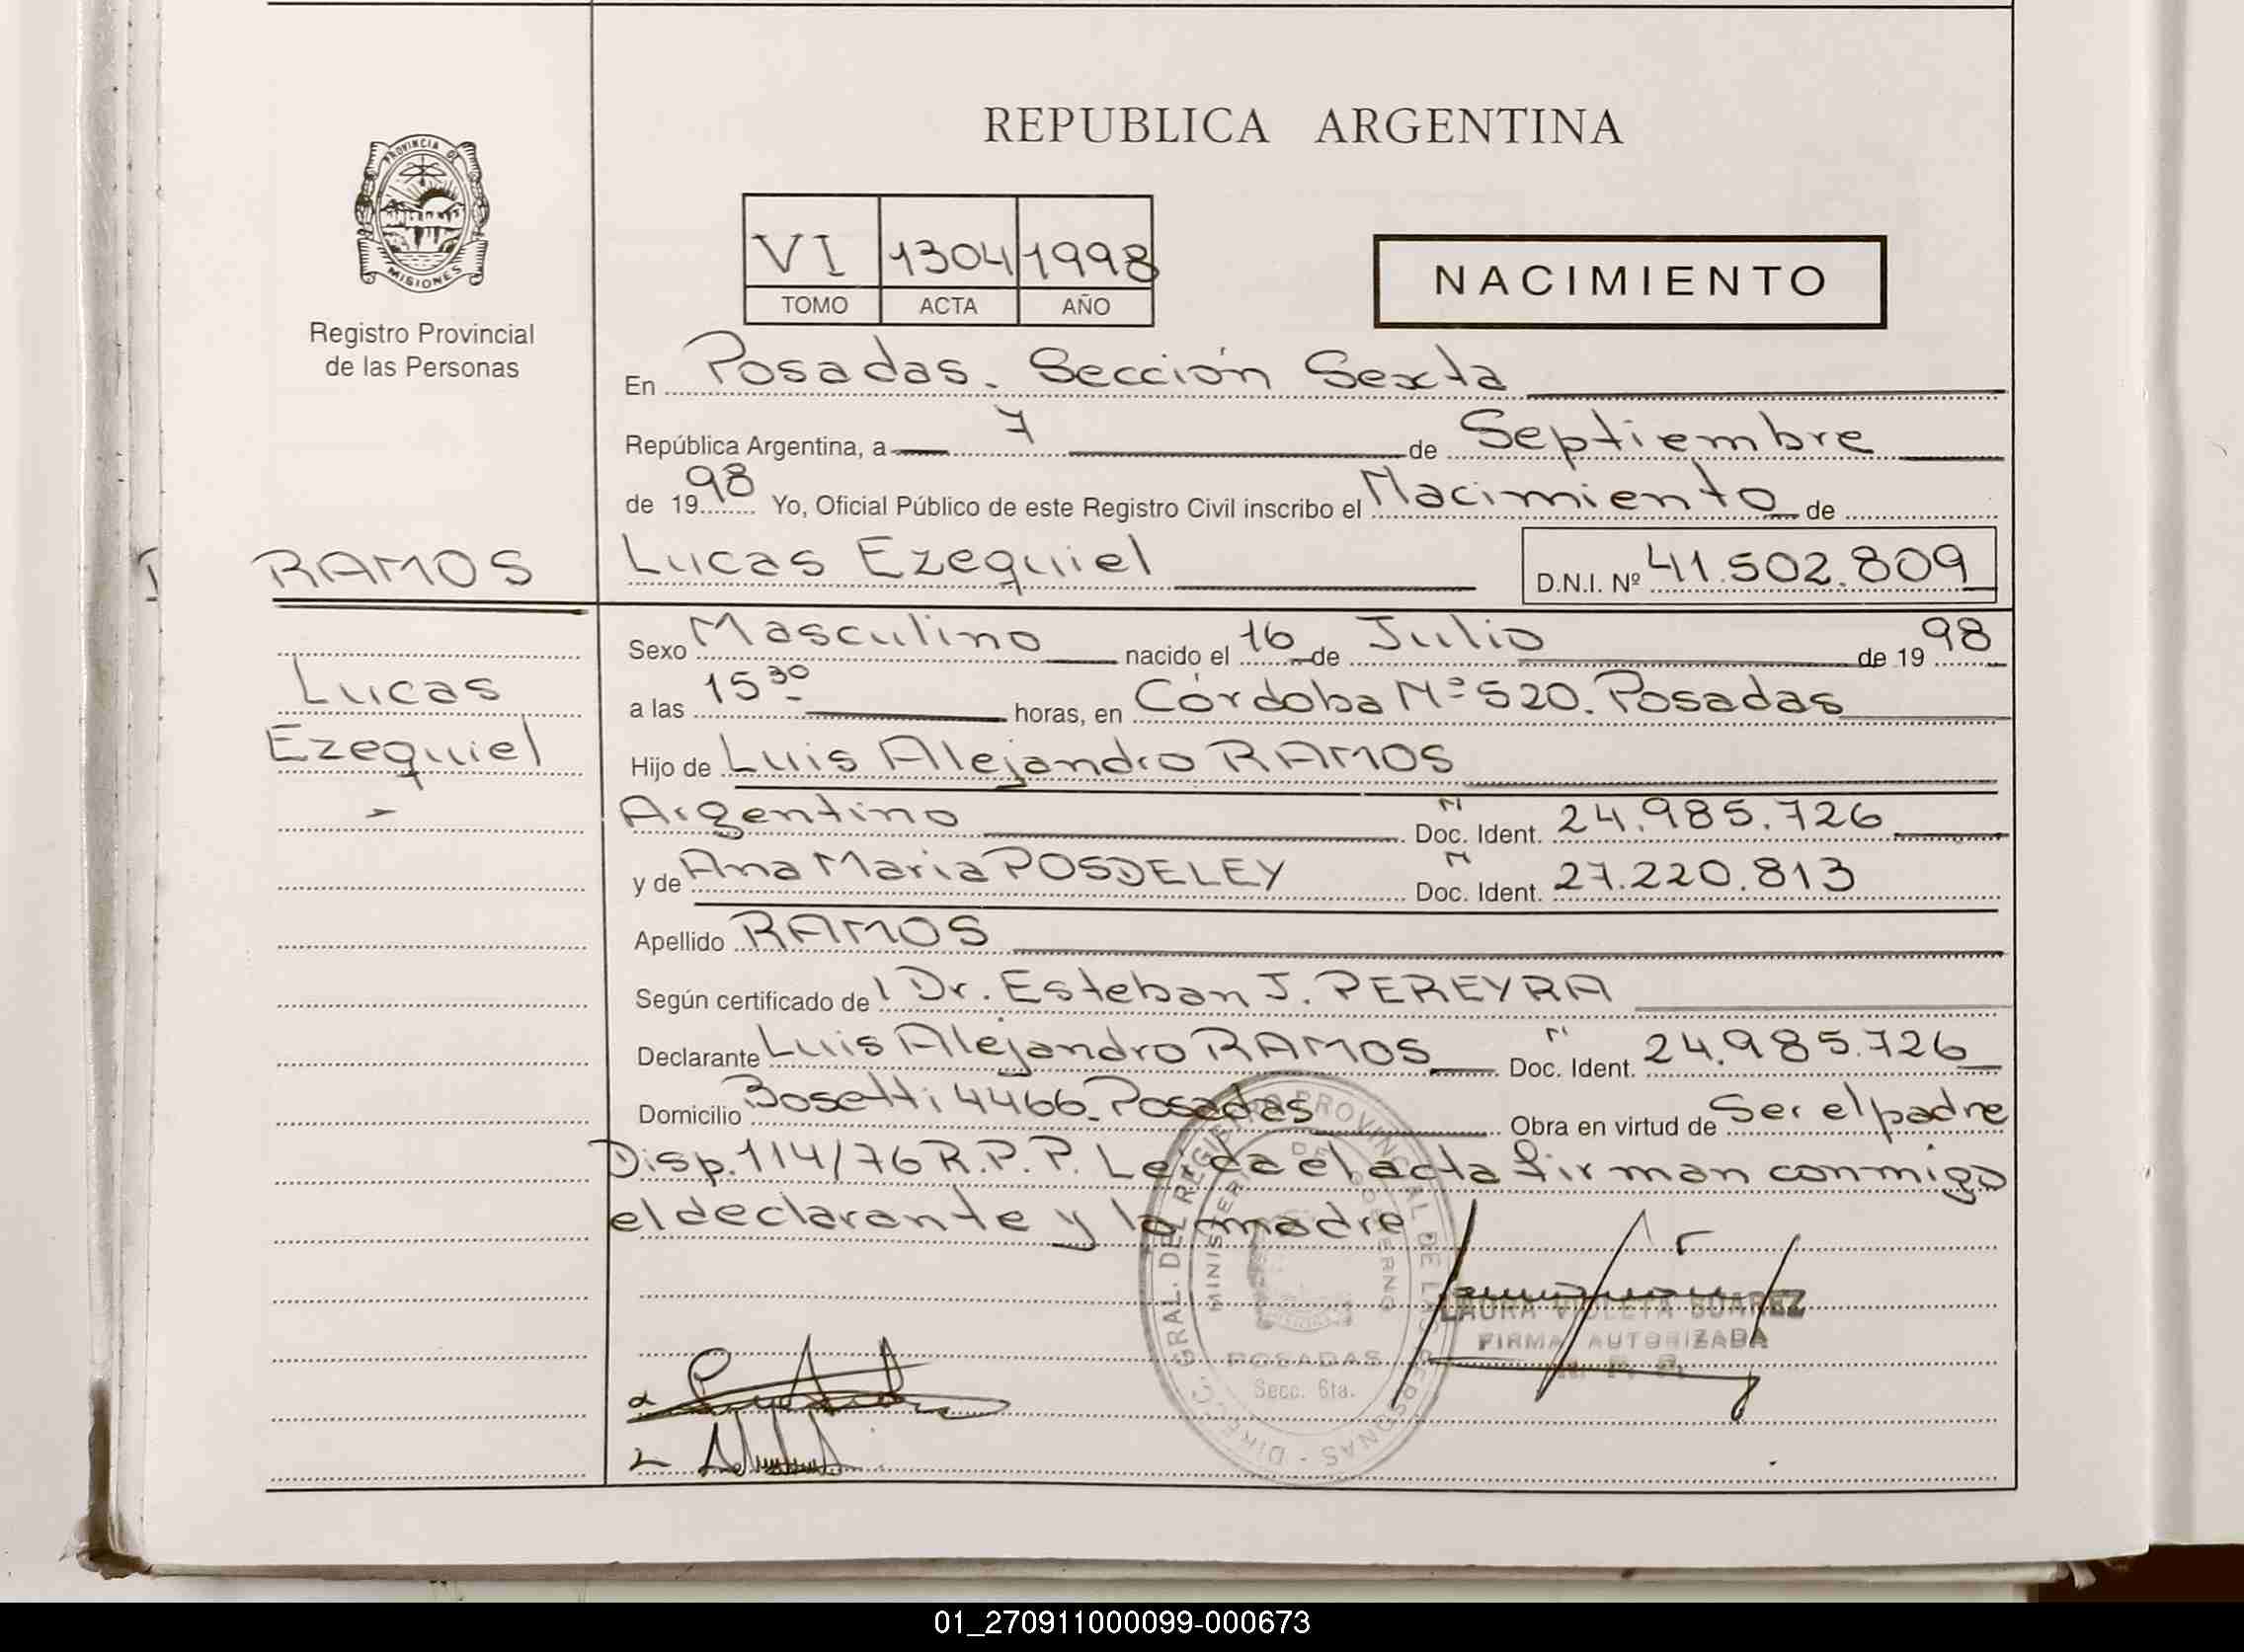 REPUBLICA ARGENTINA
PROVINCIA DE
MISIONES
Registro Provincial
de las Personas
VI 1304 1998
TOMO ACTA AÑO
NACIMIENTO
En Posadas. Sección Sexta
República Argentina, a 7 de Septiembre
de 1998 Yo, Oficial Público de este Registro Civil inscribo el Nacimiento de
RAMOS
Lucas Ezequiel D.N.I. Nº 41.502.809
Lucas
Ezequiel
Sexo Masculino nacido el 16 de Julio de 1998
a las 15 30 horas, en Córdoba Nº 520. Posadas
Hijo de Luis Alejandro RAMOS
Argentino Doc. Ident. N 24.985.726
y de Ana Maria POSDELEY Doc. Ident. N 27.220.813
Apellido RAMOS
Según certificado del Dr. Esteban J. PEREYRA
Declarante Luis Alejandro RAMOS Doc. Ident. N 24.985.726
Domicilio Bosetti 4466. Posadas Obra en virtud de Ser el padre
Disp. 114/76 R.P.P. Leida el acta firman conmigo
el declarante y la madre
DIRECC. GRAL. DEL REGISTRO PROVINCIAL DE LAS PERSONAS -
MINISTERIO DE GOBIERNO
POSADAS
Secc. 6ta.
LAURA VIOLETA SUAREZ
FIRMA AUTORIZADA
R. P. P.
01_270911000099-000673